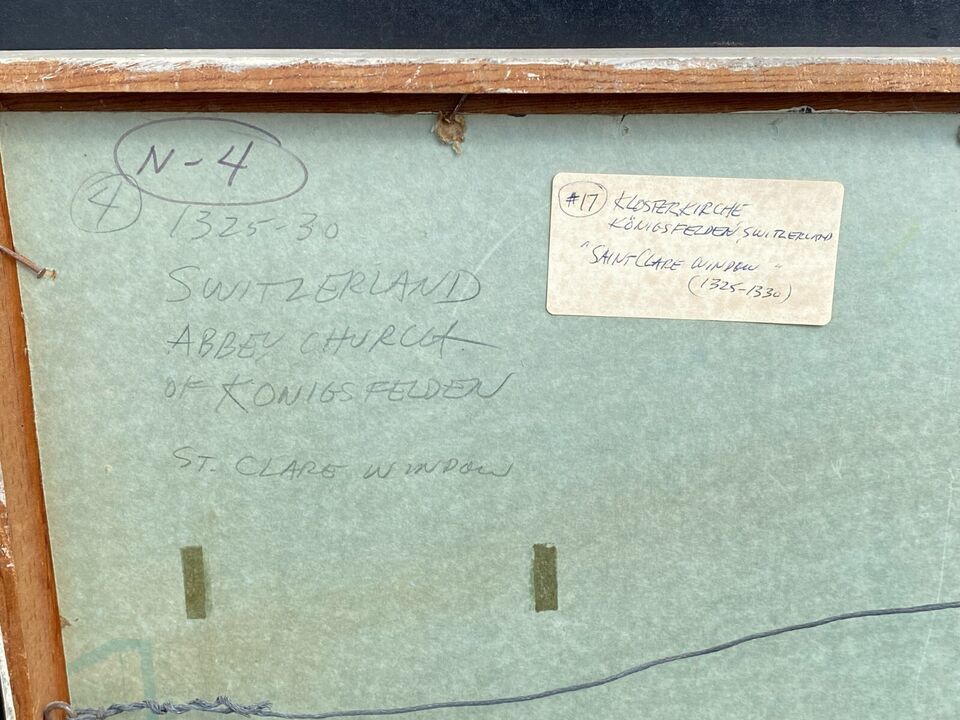 N-4
4
1325-30
SWITZERLAND
ABBEY CHURCH
OF KONIGSFELDEN
ST. CLARE WINDOW
#17 KLOSTERKIRCHE
KÖNIGSFELDEN, SWITZERLAND
"SAINT CLARE WINDOW"
(1325-1330)